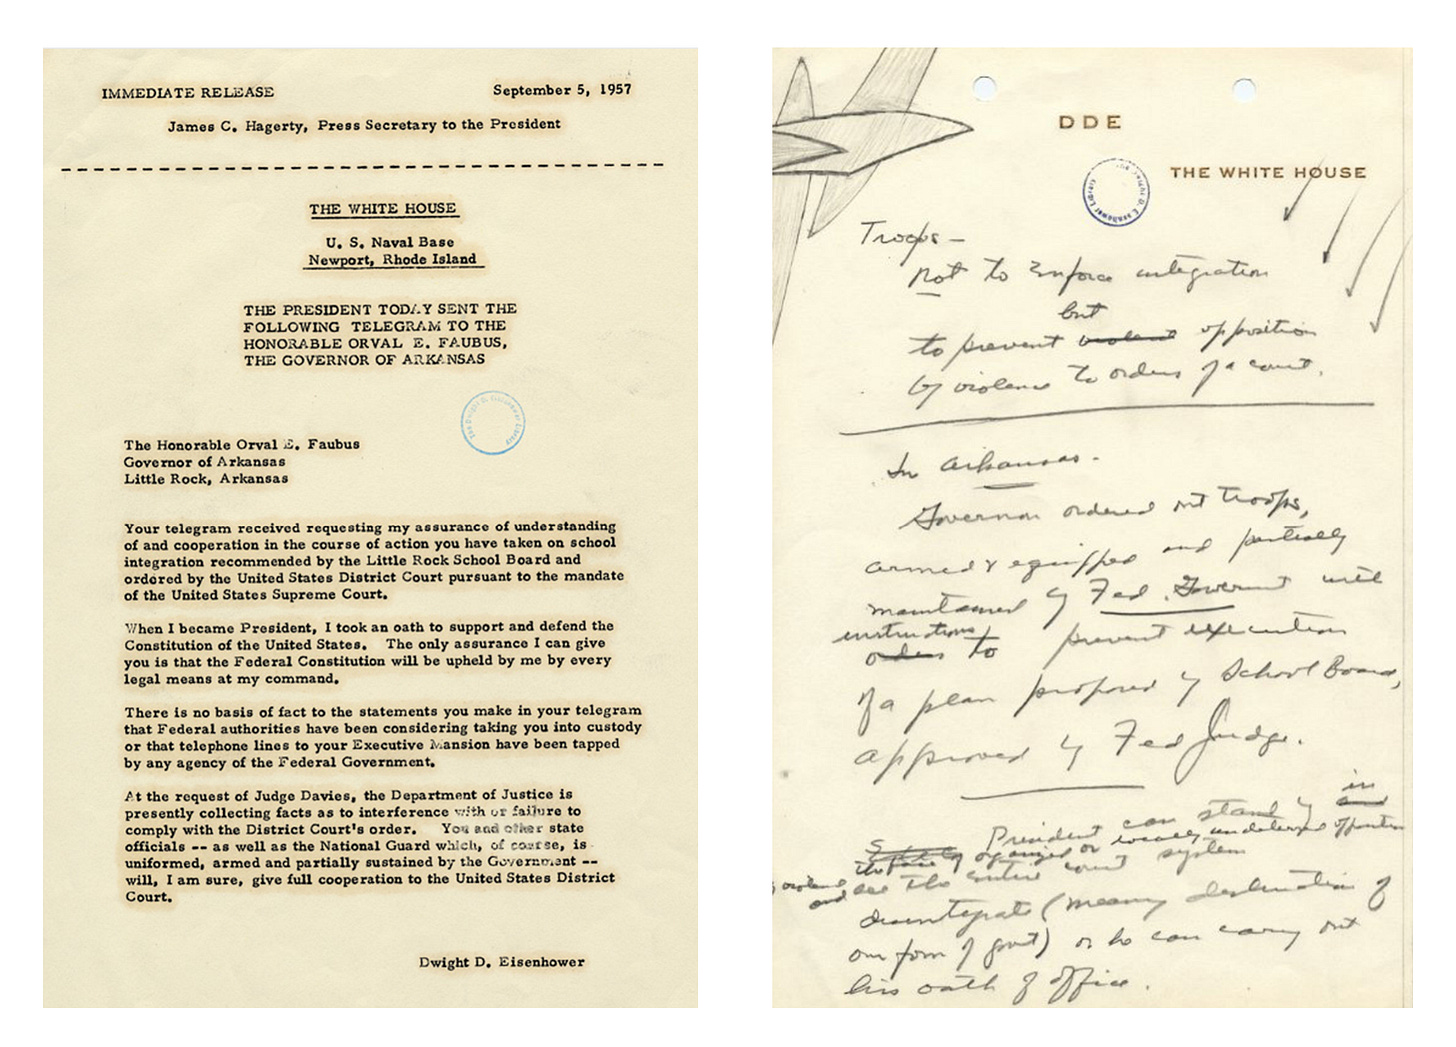 IMMEDIATE RELEASE September 5, 1957
James C. Hagerty, Press Secretary to the President
THE WHITE HOUSE
U. S. Naval Base
Newport, Rhode Island
THE PRESIDENT TODAY SENT THE
FOLLOWING TELEGRAM TO THE
HONORABLE ORVAL E. FAUBUS,
THE GOVERNOR OF ARKANSAS
The Dwight D. Eisenhower Library
The Honorable Orval E. Faubus
Governor of Arkansas
Little Rock, Arkansas
Your telegram received requesting my assurance of understanding
of and cooperation in the course of action you have taken on school
integration recommended by the Little Rock School Board and
ordered by the United States District Court pursuant to the mandate
of the United States Supreme Court.
When I became President, I took an oath to support and defend the
Constitution of the United States. The only assurance I can give
you is that the Federal Constitution will be upheld by me by every
legal means at my command.
There is no basis of fact to the statements you make in your telegram
that Federal authorities have been considering taking you into custody
or that telephone lines to your Executive Mansion have been tapped
by any agency of the Federal Government.
At the request of Judge Davies, the Department of Justice is
presently collecting facts as to interference with or failure to
comply with the District Court's order. You and other state
officials -- as well as the National Guard which, of course, is
uniformed, armed and partially sustained by the Government --
will, I am sure, give full cooperation to the United States District
Court.
Dwight D. Eisenhower
DDE
THE WHITE HOUSE
The Dwight D. Eisenhower Library
Troops -
Not to Enforce integration
but
to prevent violent opposition
by violence to orders of a court.
In Arkansas -
Governor ordered out troops,
armed & equipped and partially
maintained by Fed. Government with
instructions
orders to prevent execution
of a plan proposed by School Board,
approved by Fed Judge.
in
and
President can stand by
organized or locally undeterred opposition
violence
and see the entire court system
disintegrate (meaning destruction of
our form of govt) or he can carry out
his oath of office.